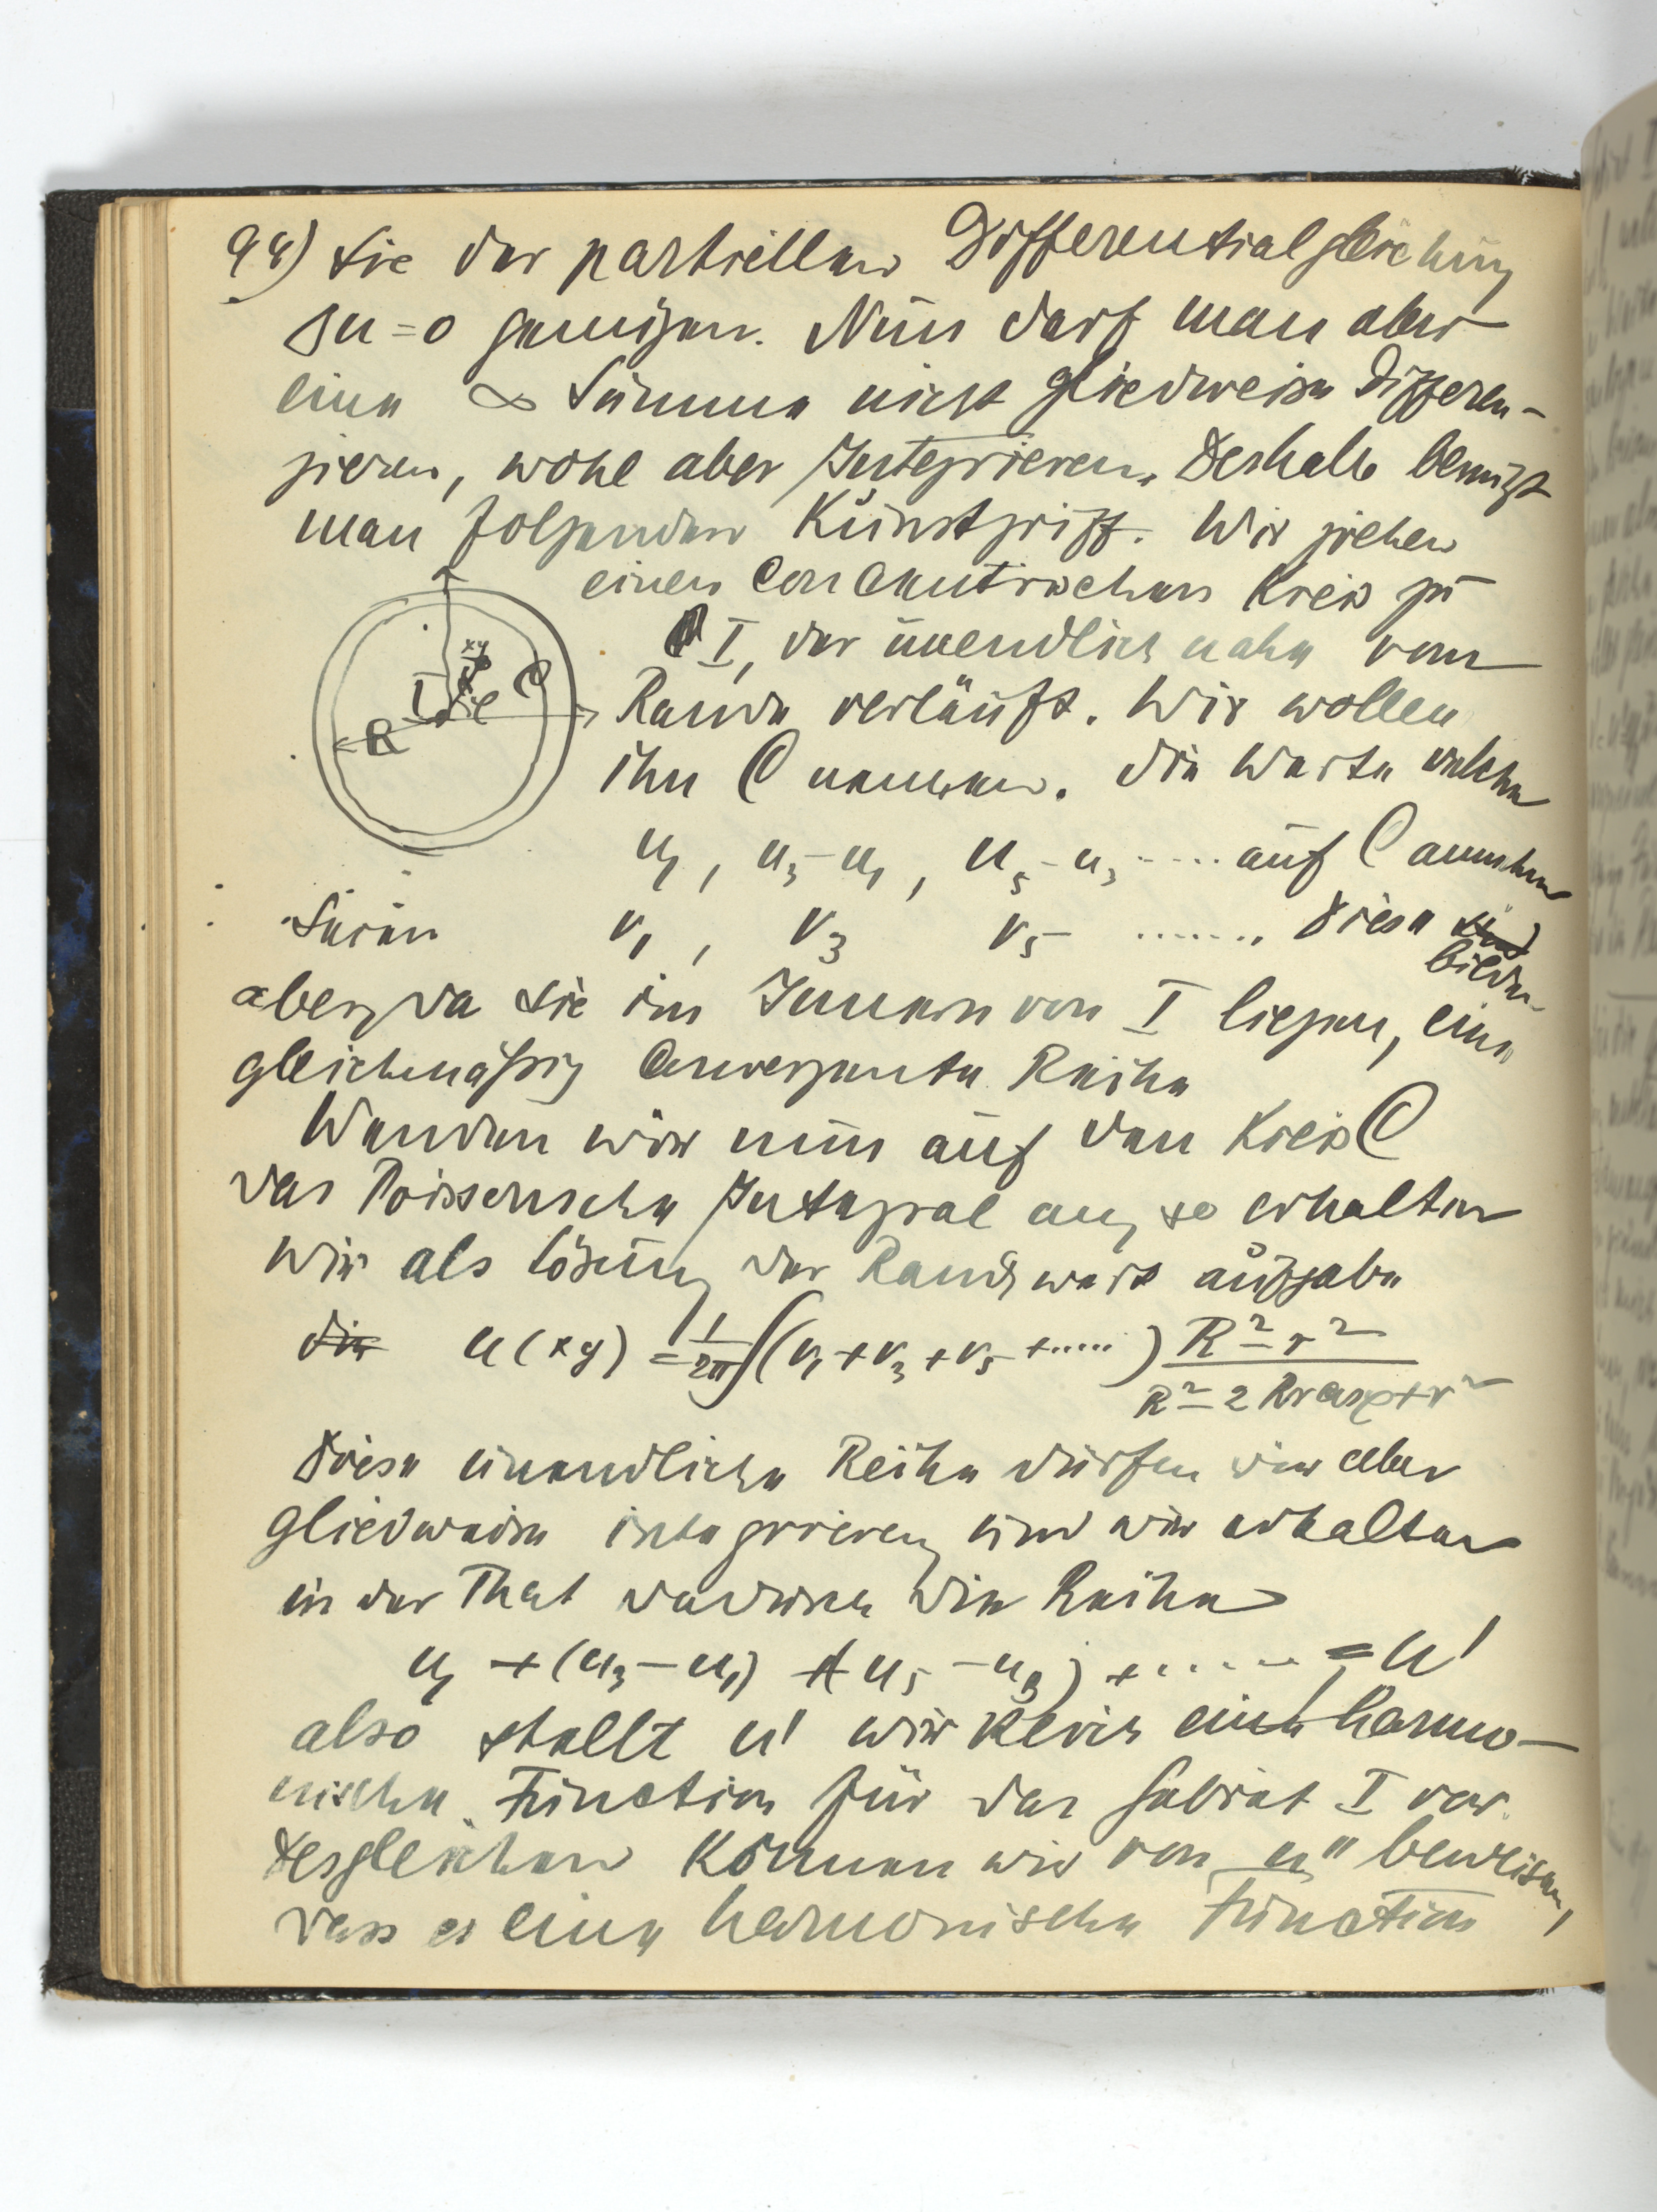 98) sie der partiellen Differentialgleichung
Δu=0 genügen. Nun darf man aber
eine ∞ Summe nicht gliedweise Differen-
zieren, wohl aber Integrieren. Deshalb benutzt
man folgenden Kunstgriff. Wir ziehen
einen Concentrischen Kreis zu
I, der unendlich nahe vom
xy
I C
R
Rande verläuft. Wir wollen
ihn C nennen. Die Werte welche
u₁, u₃-u₁, u₅-u₃ ..... auf C annehmen
Seien v₁, v₃ v₅ ....... Diese sind
bilden
aber, da sie im Innern von I liegen, eine
gleichmäßig Convergente Reihe
Wenden wir nun auf den Kreis C
das Poissonsche Integral an, so erhalten
wir als Lösung der Randwert aufgabe
die u(xy) = 1/2π ∫(v₁+v₃+v₅+.....) R²-r² / R²-2Rr cosφ+r²
Diese unendliche Reihe dürfen wir aber
gliedweise integrieren, und wir erhalten
in der That dadurch die Reihe
u₁ + (u₃-u₁) + (u₅-u₃) + ...... = u'
also stellt u' wirklich eine harmo-
nische Function für das Gebiet I vor.
Desgleichen können wir von u" beweisen,
dass es eine harmonische Function